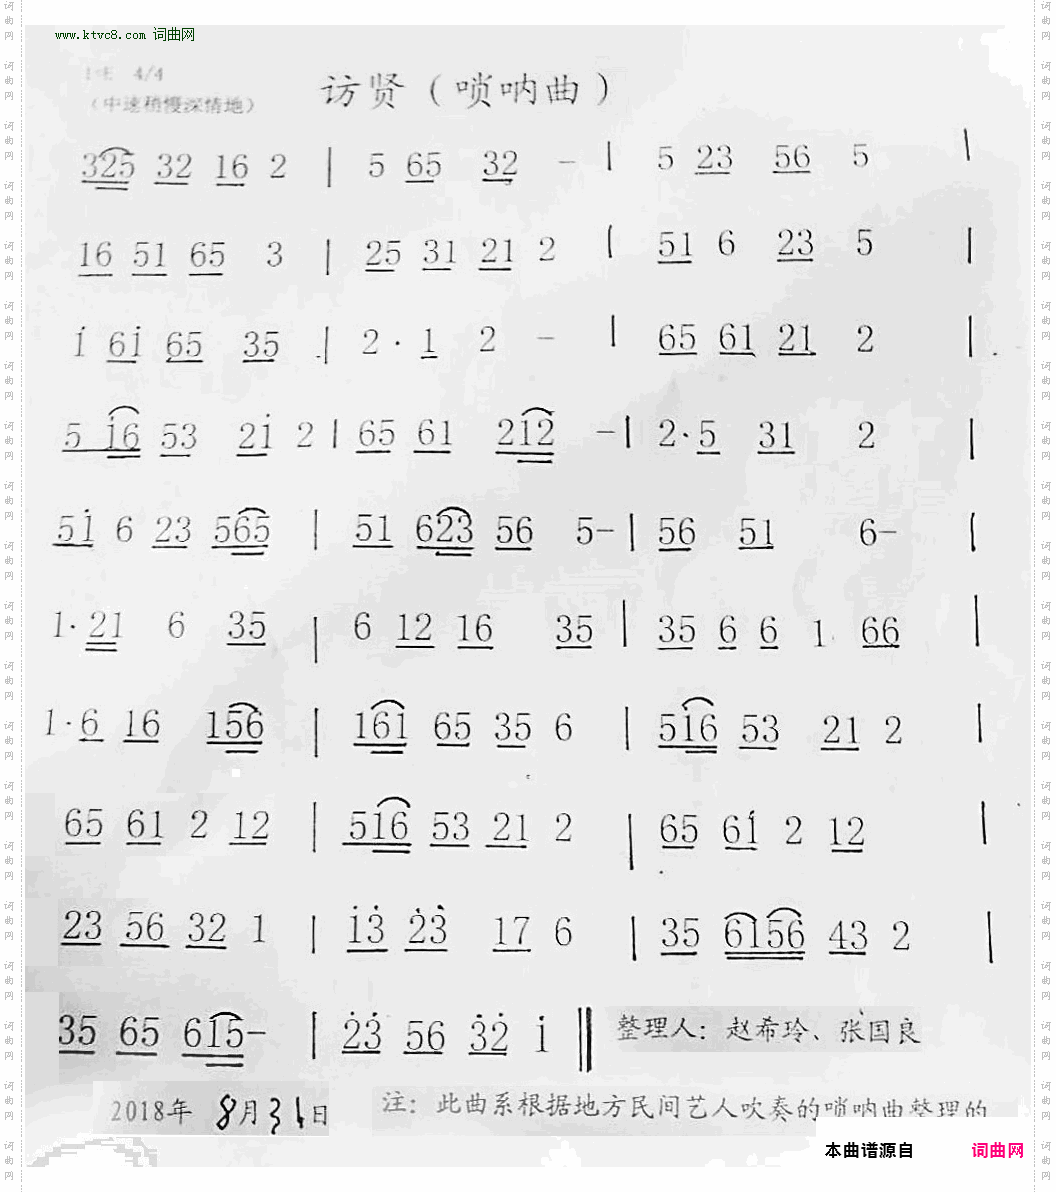 www.ktvc8.com 词曲网
1=E 4/4
访贤（唢呐曲）
（中速稍慢深情地）
325 32 16 2 | 5 65 32 - | 5 23 56 5 |
16 51 65 3 | 25 31 21 2 | 51 6 23 5 |
i 6i 65 35 | 2· 1 2 - | 65 61 21 2 |
5 i6 53 2i 2 | 65 61 2i2 - | 2·5 31 2 |
5i 6 23 565 | 51 623 56 5- | 56 51 6- |
1·21 6 35 | 6 12 16 35 | 35 6 6 1 66 |
1·6 16 156 | 161 65 35 6 | 516 53 21 2 |
65 61 2 12 | 516 53 21 2 | 65 6i 2 12 |
23 56 32 1 | i3̇ 2̇3̇ 17 6 | 35 6156 43 2 |
35 65 615- | 2̇3̇ 56 3̇2̇ i ‖
整理人：赵希玲、张国良
2018年 8月31日
注：此曲系根据地方民间艺人吹奏的唢呐曲整理的
本曲谱源自 词曲网